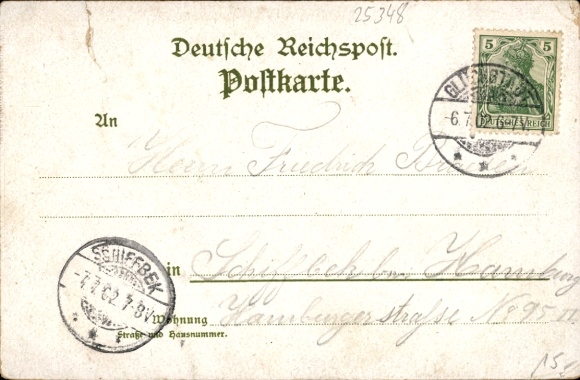 25348
Deutsche Reichspost.
Postkarte.
5 5
DEUTSCHES REICH
GLÜCKSTADT
-6.7. 02. 6-7 N.
An
Herrn Friedrich
in Schiffbek bei Hamburg
Wohnung Hamburgerstraße No 95 II
Straße und Hausnummer.
SCHIFFBEK
-7.7.02. 7-8V